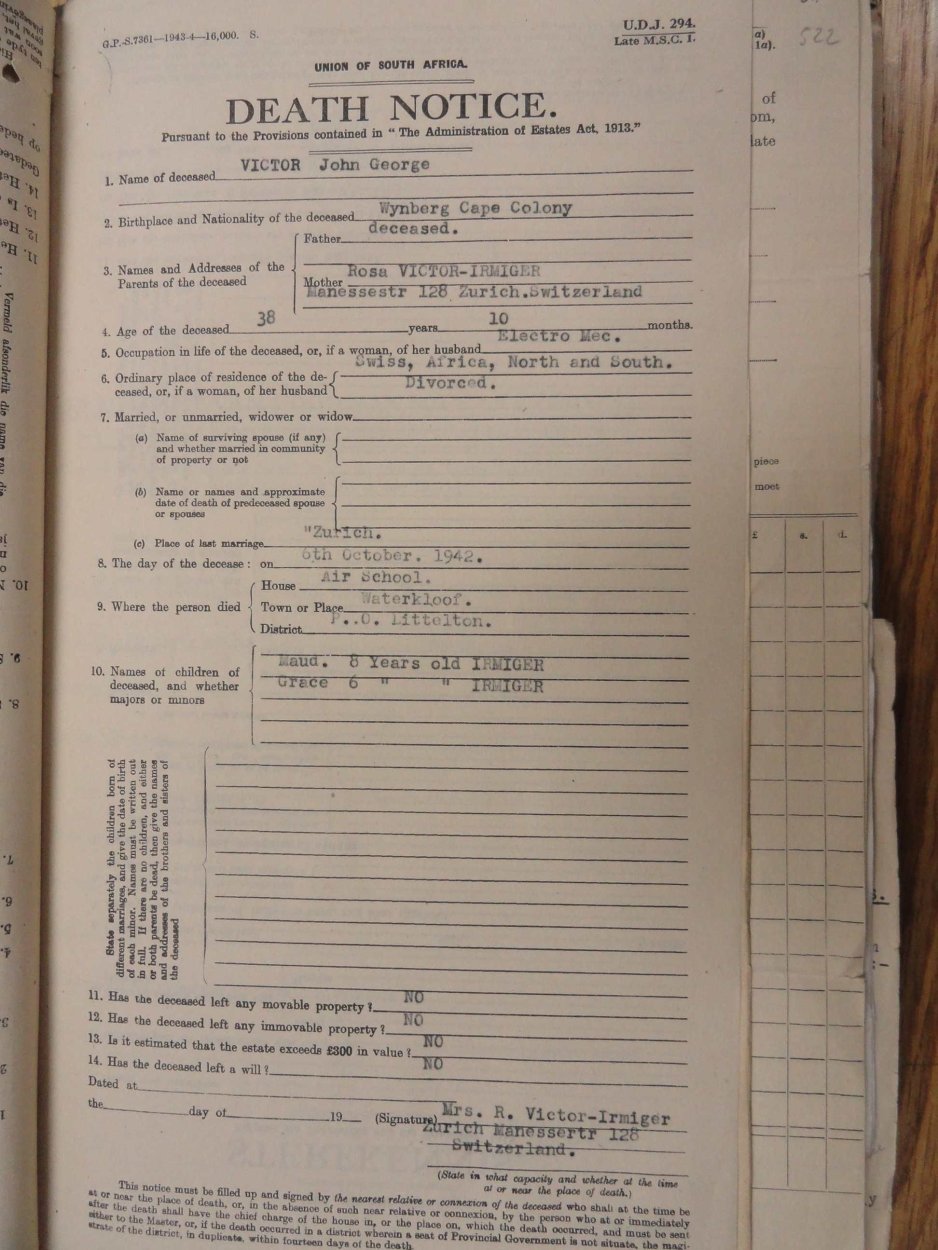 G.P.-S.7361—1943-4—16,000. S.
U.D.J. 294.
Late M.S.C. I.
UNION OF SOUTH AFRICA.
DEATH NOTICE.
Pursuant to the Provisions contained in “ The Administration of Estates Act, 1913.”
1. Name of deceased VICTOR John George
2. Birthplace and Nationality of the deceased Wynberg Cape Colony
3. Names and Addresses of the Parents of the deceased
Father deceased.
Mother Rosa VICTOR-IRMIGER
Manessestr 128 Zurich.Switzerland
4. Age of the deceased 38 years 10 months.
5. Occupation in life of the deceased, or, if a woman, of her husband Electro Mec.
6. Ordinary place of residence of the de-
ceased, or, if a woman, of her husband
Swiss, Africa, North and South.
Divorced.
7. Married, or unmarried, widower or widow
(a) Name of surviving spouse (if any)
and whether married in community
of property or not
(b) Name or names and approximate
date of death of predeceased spouse
or spouses
(c) Place of last marriage "Zurich.
8. The day of the decease : on 6th October. 1942.
9. Where the person died
House Air School.
Town or Place Waterkloof.
District P..O. Littelton.
10. Names of children of
deceased, and whether
majors or minors
Maud. 8 Years old IRMIGER
Grace 6 " " IRMIGER
State separately the children born of
different marriages, and give the date of birth
of each minor. Names must be written out
in full. If there are no children, and either
or both parents be dead, then give the names
and addresses of the brothers and sisters of
the deceased
11. Has the deceased left any movable property ? NO
12. Has the deceased left any immovable property ? NO
13. Is it estimated that the estate exceeds £300 in value ? NO
14. Has the deceased left a will ? NO
Dated at
the day of 19 (Signature) Mrs. R. Victor-Irmiger
Zurich Manessertr 128
Switzerland.
(State in what capacity and whether at the time
at or near the place of death.)
This notice must be filled up and signed by the nearest relative or connexion of the deceased who shall at the time be
at or near the place of death, or, in the absence of such near relative or connexion, by the person who at or immediately
after the death shall have the chief charge of the house in, or the place on, which the death occurred, and must be sent
either to the Master, or, if the death occurred in a district wherein a seat of Provincial Government is not situate, the magi-
strate of the district, in duplicate, within fourteen days of the death.
a)
1a).
522
of
om,
late
piece
moet
£ s. d.